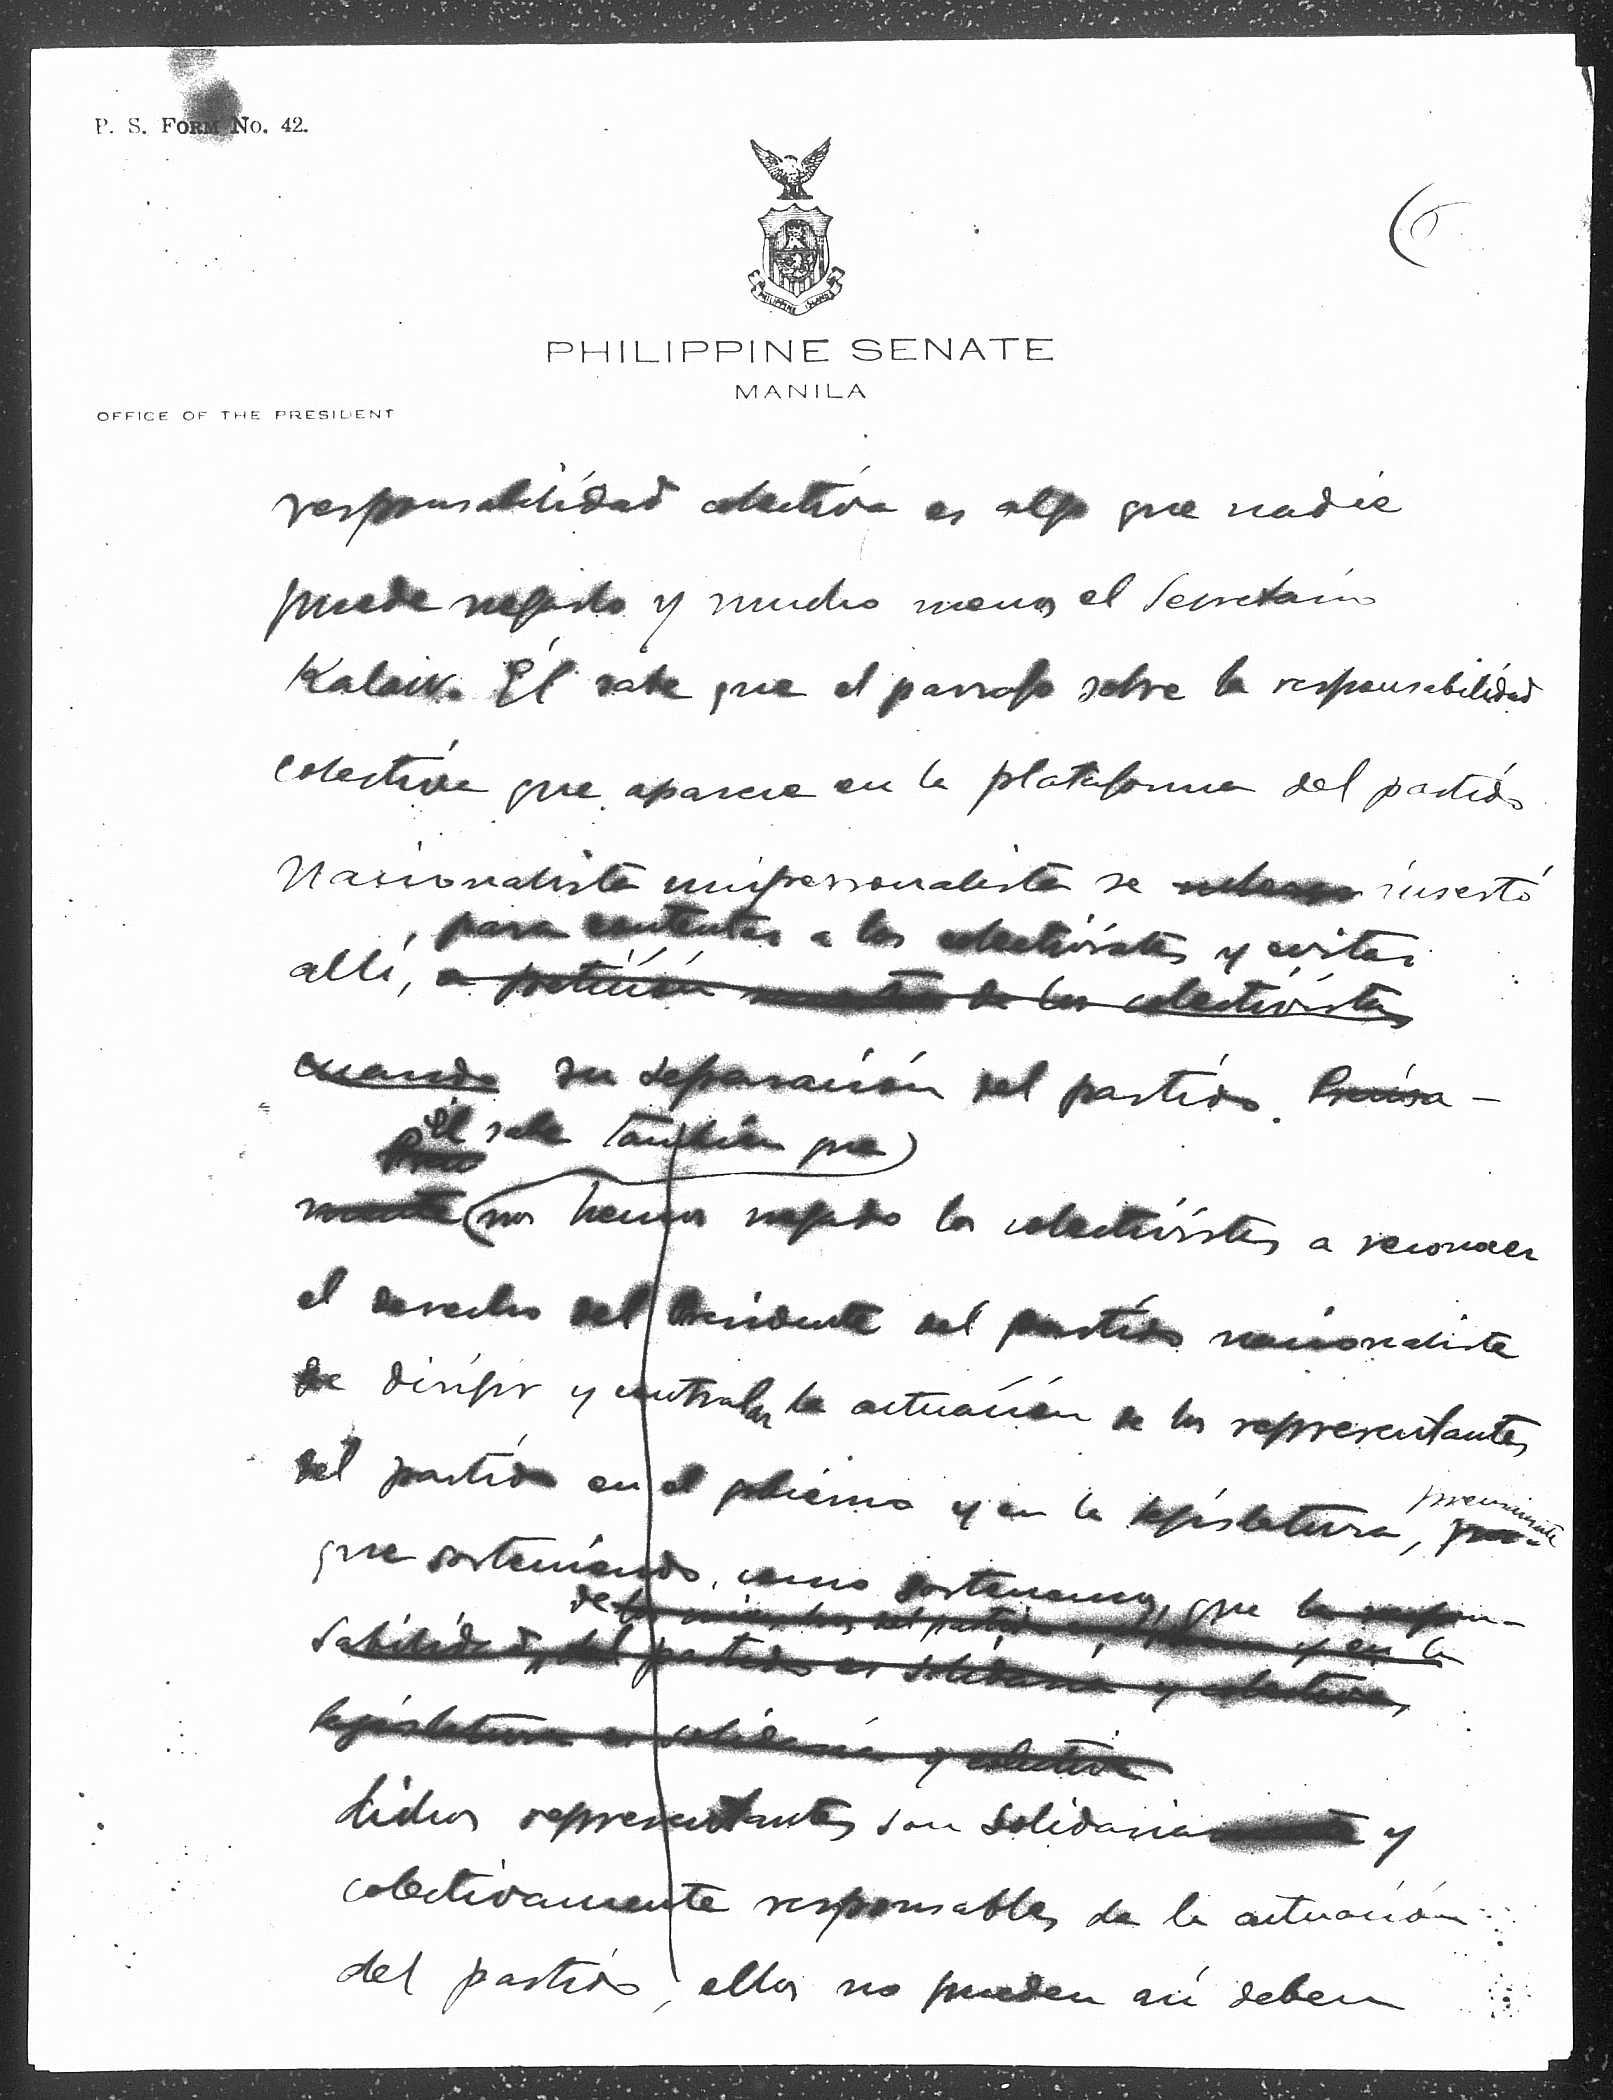 P. S. FORM No. 42.
(6
PHILIPPINE ISLANDS
PHILIPPINE SENATE
MANILA
OFFICE OF THE PRESIDENT
responsabilidad colectiva es algo que nadie
puede negarlo y mucho menos el Secretario
Kalaw. Él sabe que el parrafo sobre la responsabilidad
colectiva que aparece en la plataforma del partido
Nacionalista unipersonalista se insertó
, para contentar a los colectivistas y evitar
allí, a petición de los colectivistas
cuando su separación del partido. Precisa-
él sabe también que)
mente (nos hemos negado los colectivistas a reconocer
el derecho del Presidente del partido nacionalista
de dirigir y controlar la actuación de los representantes
del partido en el gobierno y en la legislatura,
que sosteniendo, como sostenemos, que la respon-
de los miembros del partido y en la
sabilidad del partido es solidaria y colectiva,
legislatura es solidaria y colectiva
dichos representantes son solidaria y
colectivamente responsables de la actuación
del partido, ellos no pueden ni deben